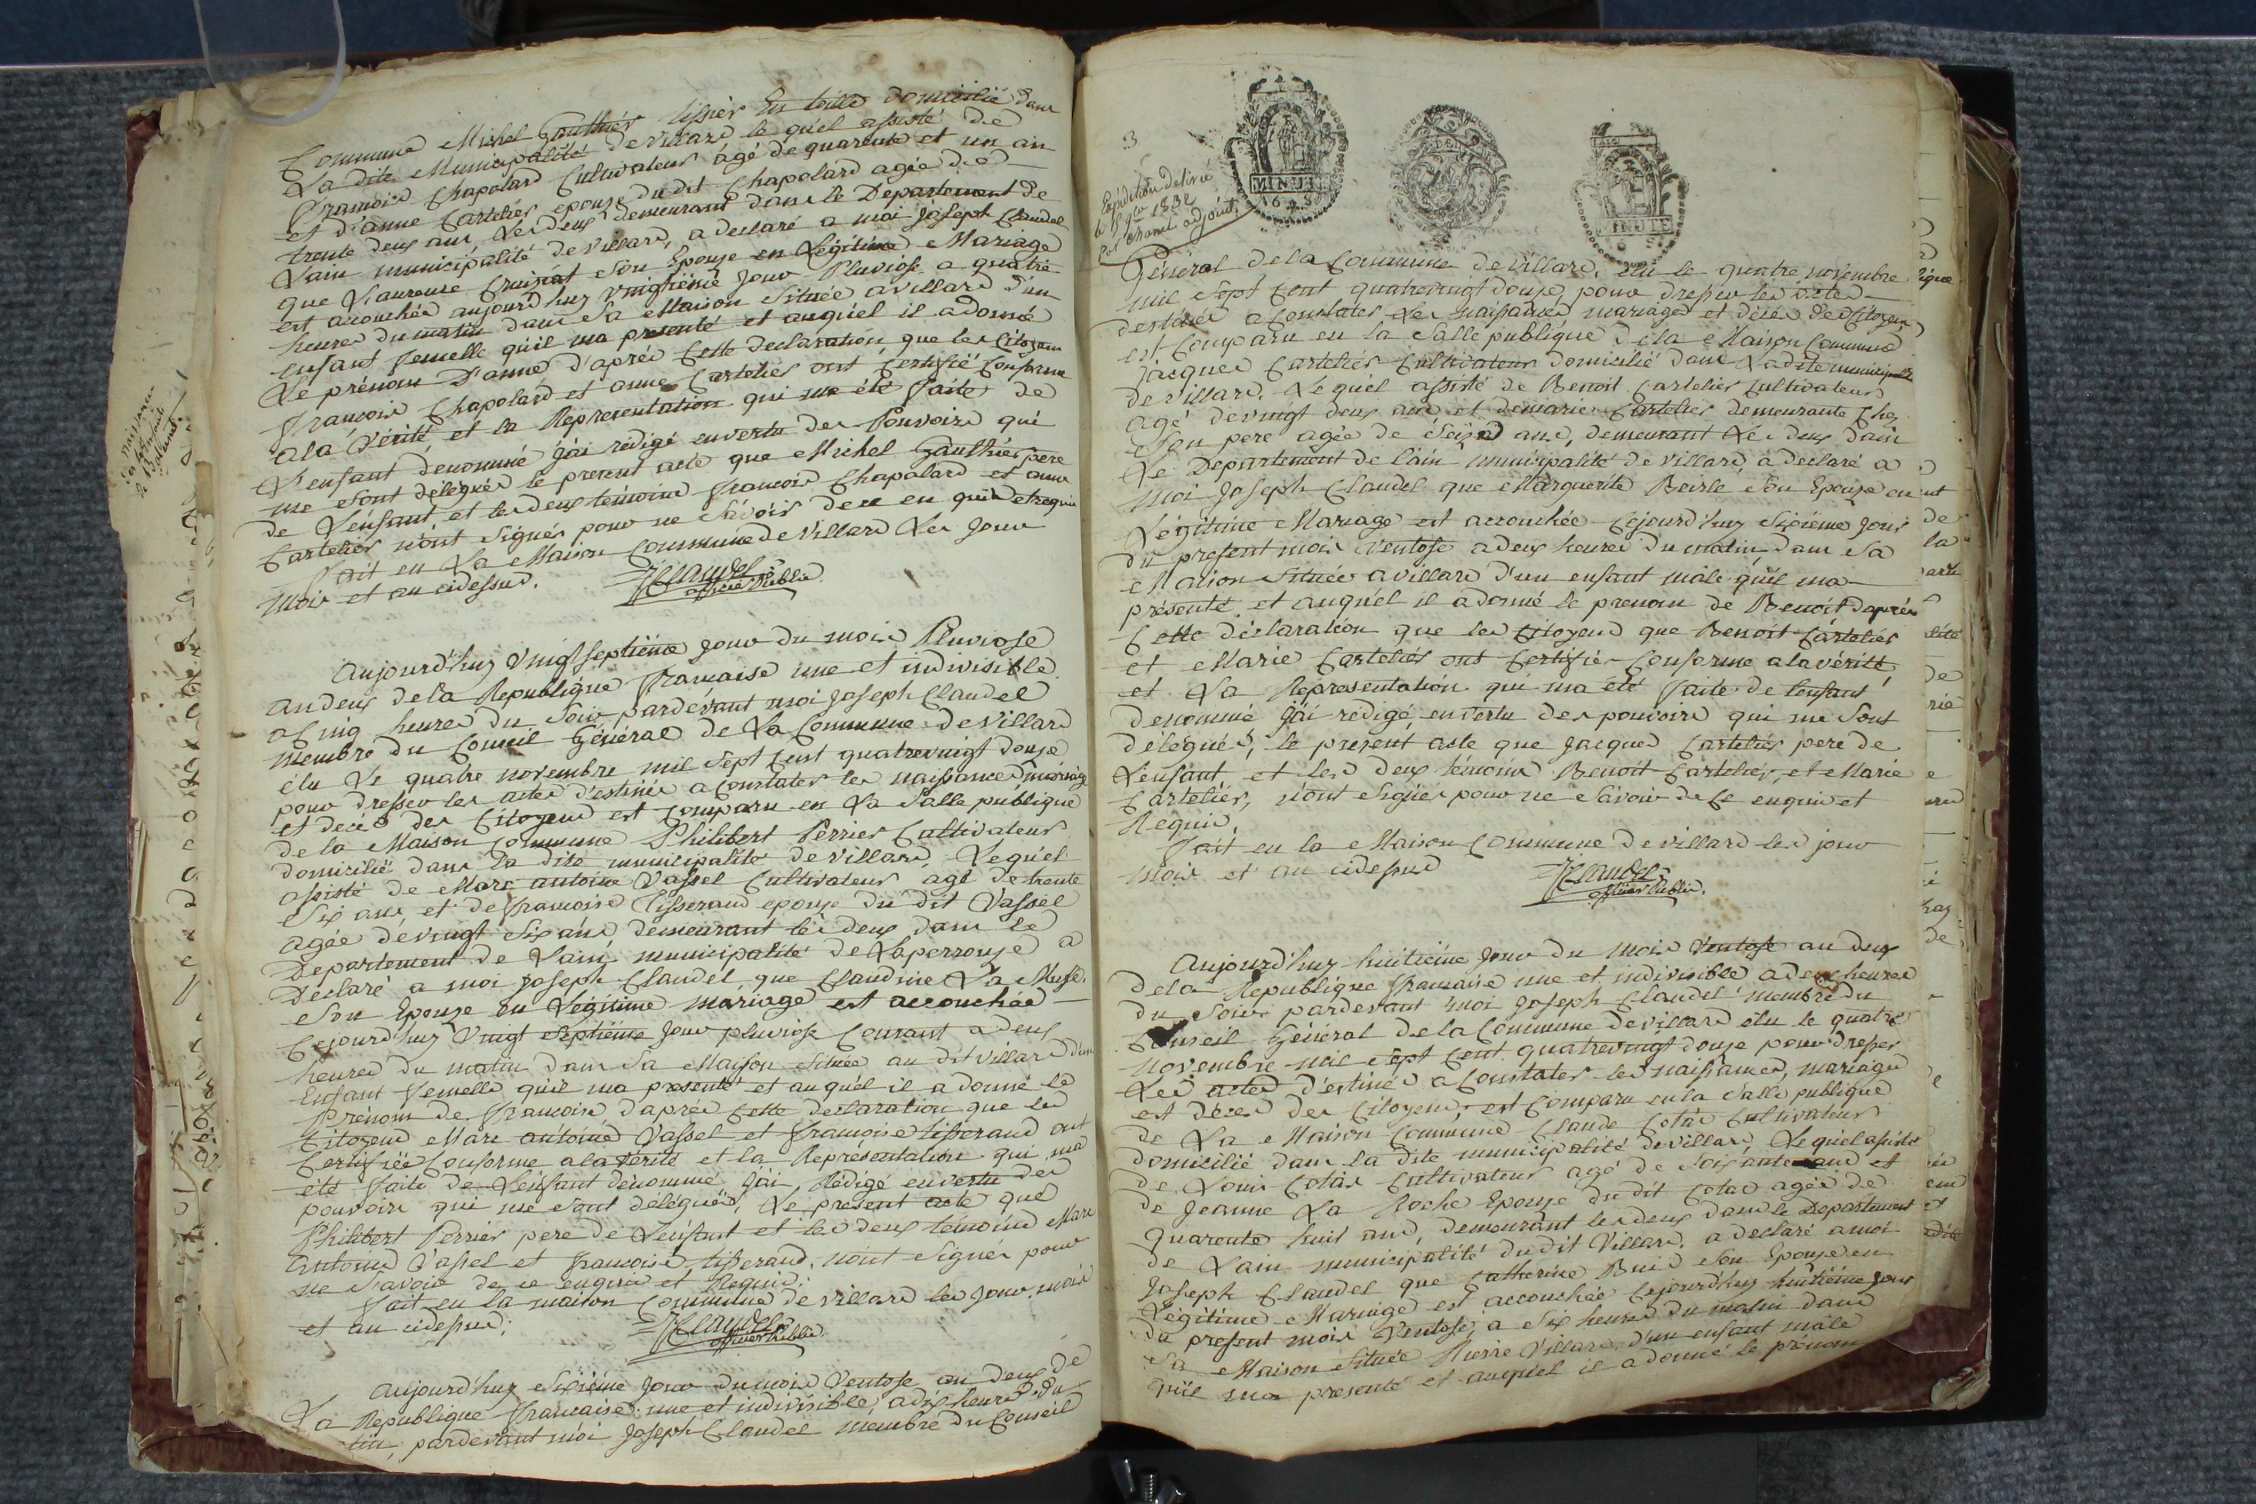 Commune Michel Gauthier tissier En toille domicilié dans
La dite Municipalité de villard le quel assisté de
francois Chapolard Cultivateur âgé de quarente et un an
et d'anne Cartelier epouze du dit Chapolard agée de
trente deux ans, Les deux demeurant dans le Departement de
Lain municipalité de villard, a declaré a moi Joseph Claudel
que Laurence Cruizat Son Epouze en Légitime Mariage
est accouchée aujourd'huy vingtiéme jour Pluviose a quatre
heures du matin dans Sa Maison Située a villard d'un
enfant femelle qu'il ma presenté et auquel il a donné
Le prénom D'anne d'après Cette declaration que les Citoyens
francois Chapolard et anne Cartelier ont Certifié Conforme
a la vérité et la Representation qui me été faite de
L'enfant denommé j'ai rédigé en vertu des Pouvoirs qui
me Sont délégués le present acte que Michel Gauthier pere
de L'enfant et les deux témoins francois Chapolard et anne
Cartelier n'ont Signés pour ne Savoir de ce en quis et requis
fait en La Maison Commune de villard Les Jour
mois et an cidessus.
JClaudel
officier Public
aujourd'huy vingt septiéme jour du mois Pluviose
an deux de la Republique francaise une et indivisible
a Cinq heures du Soir pardevant moi Joseph Claudel
membre du Conseil Général de La Commune de villard
élu Le quatre novembre mil sept Cent quatrevingt douze
pour dresser les actes d'estinés a Constater les naissances mariage
et decés des Citoyens est Comparu en La Salle publique
de la Maison Commune Philibert Perrier Cultivateur
domicilié dans la dite municipalité de villard Lequel
assisté de Marc antoine Vassel Cultivateur agé de trente
Six ans, et de francoise Tisserand epouze du dit Vassel
agée de vingt Six ans demeurant les deux dans le
Departement de Lain municipalité de Laperrouze a
Declaré a moi Joseph Claudel que Claudine La Musse
Son Epouze en Légitime mariage est accouchée
Cejourd'huy vingt Septiéme jour pluviose Courant a deux
heures du matin dans Sa Maison Située au dit villard d'un
Enfant femelle qu'il ma presenté et auquel il a donné le
Prénom de francoise d'après Cette declaration que les
Citoyens Marc antoine Vassel et francoise tisserand ont
Certifiée Conforme a la vérité et la Représentation qui ma
été faite de L'énfant denommé j'ai Rédigé en vertu des
pouvoirs qui me Sont délégués, Le present acte que
Philibert Perrier pere de L'enfant et les deux témoins Marc
antoine Vassel et francoise tisserand nont Signés pour
ne Savoir de ce enquis et Requis.
fait en la maison Commune de villard les jour mois
et an cidessus;
JClaudel
officier Public
aujourd'huy Sixiéme jour du mois Ventose an deux de
La Republique francaise une et indivisible a dix heures du
pardevant moi Joseph Claudel membre du Conseil
3
Expédition delivrée
Par Manel adjoint
MINUTE
MINUTE
Général de la Commune de villard. élu le quatre novembre
mil Sept Cent quatrevingt douze, pour dresser les actes
destinés a Constater Les naissances mariages et décés des Citoyens
est Comparu en la Salle publique de la Maison Commune
jacques Cartelier Cultivateur domicilié dans La dite municipalité
de villard, Lequel assisté de Benoit Cartelier Cultivateur
agé de vingt deux ans et de marie Cartelier demeurante Chez
Son pere agée de Seize ans, demeurant Les deux dans
Le Departement de l'ain municipalité de villard, a declaré a
moi Joseph Claudel que Marguerite Beisle Son Epouze en
Légitime Mariage est accouchée Cejourd'huy Sixiéme jour
du present mois Ventose a deux heures du matin dans Sa
Maison Située a villard d'un enfant mâle qu'il ma
présenté et auquel il a donné le prenom de Benoit d'après
Cette déclaration que les Citoyens que Benoit Cartelier
et Marie Cartelier ont Certifiés Conforme a la vérité
et La Representation qui ma été faite de l'enfant
denommé j'ai rédigé, en vertu des pouvoirs qui me Sont
délégués, le present acte que jacques Cartelier pere de
L'enfant et les deux témoins Benoit Cartelier, et Marie
Cartelier, n'ont Signés pour ne Savoir de Ce enquis et
Requis.
fait en la Maison Commune de villard les jour
mois et an cidessus
JClaudel
officier Public.
aujourd'huy huitiéme jour du mois Ventose an deux
de la Republique francaise une et indivisible a deux heures
du Soir pardevant moi Joseph Claudel membre du
Conseil Général de la Commune de villard élu le quatre
novembre mil Sept Cent quatrevingt douze pour dresser
Les actes d'estinés a Constater les naissances, mariages
et décés des Citoyens, est Comparu en la Salle publique
de La Maison Commune Claude Cotas Cultivateur
domicilié dans la dite municipalité de villard Lequel assisté
de Louis Cotas Cultivateur agé de Soixante ans et
de Jeanne La Roche Epouze du dit Cotas agée de
quarente huit ans, demeurant les deux dans le Departement
de Lain municipalité du dit Villard. a declaré a moi
Joseph Claudel que Catherine Buis Son Epouze en
Légitime Mariage est accouchée Cejourd'huy huitiéme jour
du present mois Ventose, a Six heures du matin dans
Sa Maison Située Pierre Villard, d'un enfant mâle
qu'il ma presenté et auquel il a donné le prénom